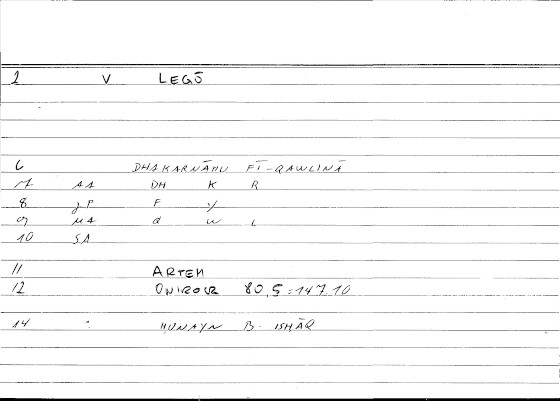 1 V LEGŌ
6 DHAKARNĀHU FĪ-QAWLINĀ
7 AA DH K R
8 JP F Y
9 MA Q W L
10 SA
11 ARTEM
12 ONIROCR 80,5=147,10
14 : HUNAYN B. ISHĀQ